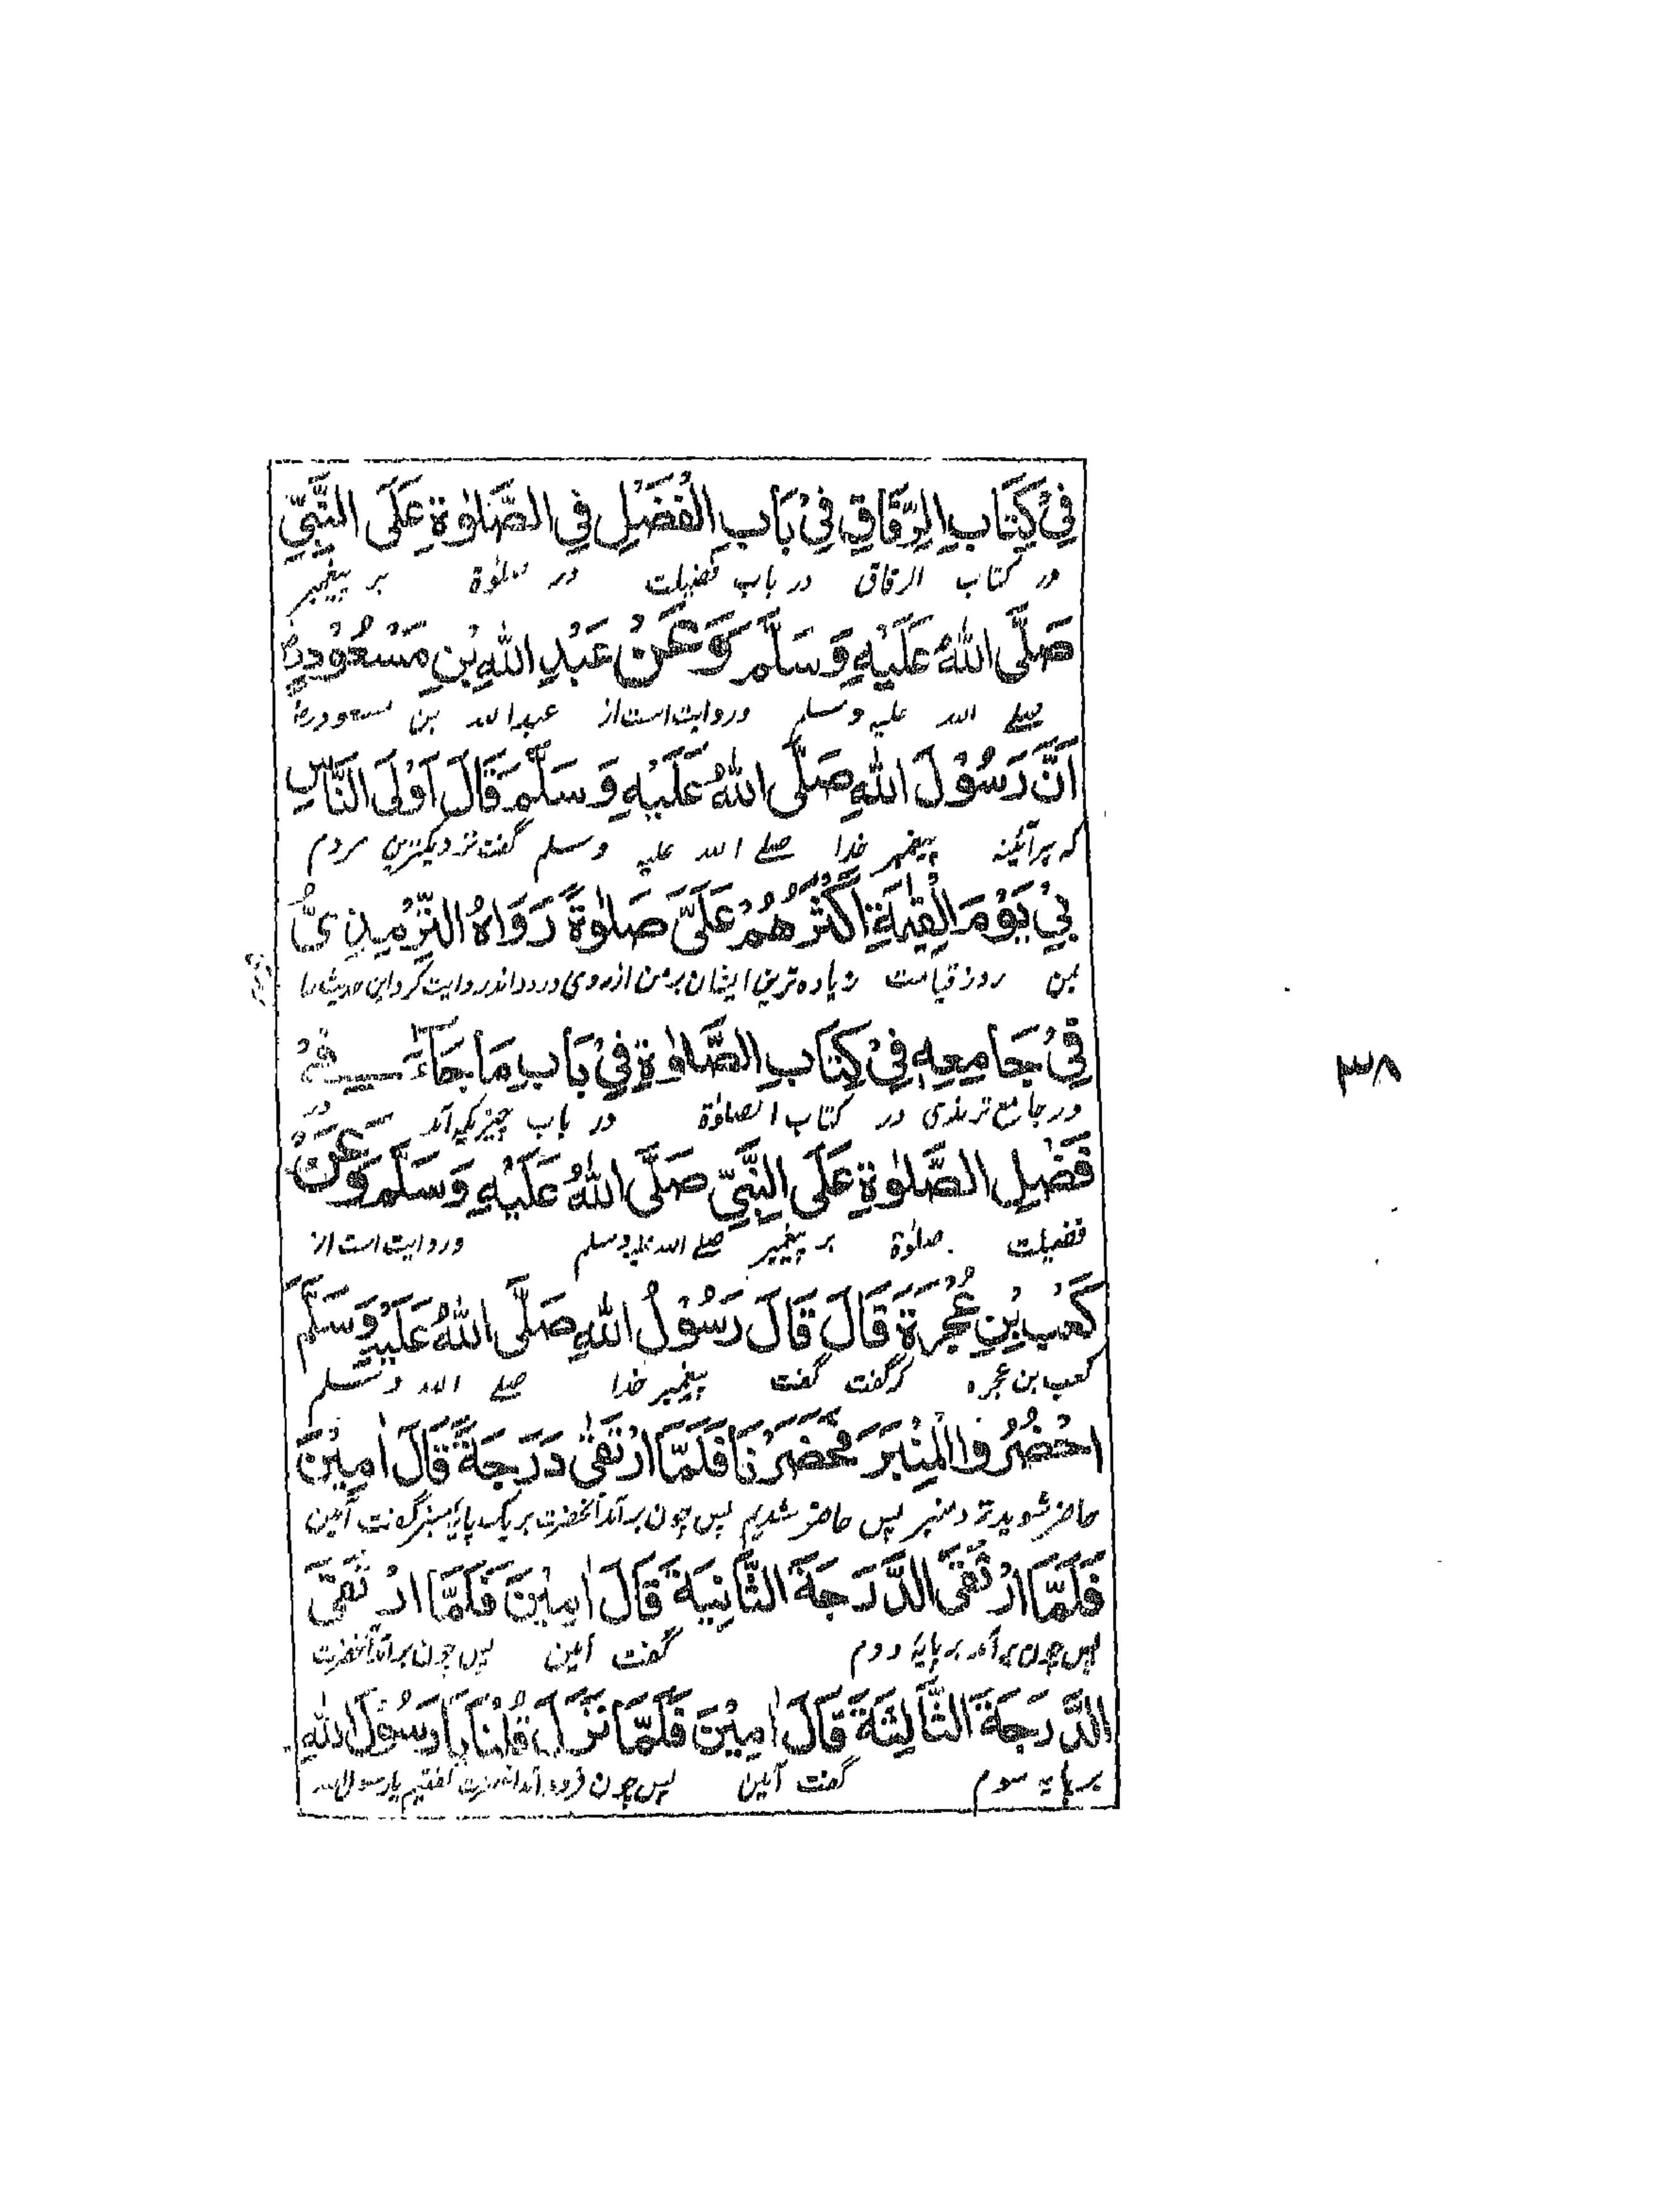 فِیْ کِتَابِ الرِّقَاقِ فِیْ بَابِ الْفَضْلِ فِی الصَّلٰوةِ عَلَی النَّبِیِّ
در کتاب الرقاق در باب فضیلت در صلوٰة بر پیغمبر
صَلَّی اللّٰهُ عَلَیْهِ وَسَلَّمَ وَعَنْ عَبْدِ اللّٰهِ بْنِ مَسْعُوْدٍ
صلے الله علیه وسلم وروایت است از عبدالله بن مسعود رض
اَنَّ رَسُوْلَ اللّٰهِ صَلَّی اللّٰهُ عَلَیْهِ وَسَلَّمَ قَالَ اَوْلَی النَّاسِ
که هرآئینه پیغمبر خدا صلے الله علیه وسلم گفت نزدیکترین مردم
بِیْ یَوْمَ الْقِیٰمَةِ اَکْثَرُهُمْ عَلَیَّ صَلٰوةً رَوَاهُ التِّرْمِیْذِیُّ
بمن روز قیامت زیاده ترین ایشان بر من از روی درود اند روایت کرد این حدیث را
فِیْ جَامِعِهٖ فِیْ کِتَابِ الصَّلٰوةِ فِیْ بَابِ مَا جَآءَ فِیْ
در جامع ترمذی در کتاب الصلوٰة در باب چیزیکه آمد در
فَضْلِ الصَّلٰوةِ عَلَی النَّبِیِّ صَلَّی اللّٰهُ عَلَیْهِ وَسَلَّمَ وَعَنْ
فضیلت صلوٰة بر پیغمبر صلے الله علیه وسلم وروایت است از
کَعْبِ بْنِ عُجْرَةَ قَالَ قَالَ رَسُوْلُ اللّٰهِ صَلَّی اللّٰهُ عَلَیْهِ وَسَلَّمَ
کعب بن عجره که گفت گفت پیغمبر خدا صلے الله وسلم
احْضُرُوا الْمِنْبَرَ فَحَضَرْنَا فَلَمَّا ارْتَقٰی دَرَجَةً قَالَ اٰمِیْنَ
حاضر شوید نزد منبر پس حاضر شدیم پس چون برآمد آنحضرت بر یک پایهٔ منبر گفت آمین
فَلَمَّا ارْتَقَی الدَّرَجَةَ الثَّانِیَةَ قَالَ اٰمِیْنَ فَلَمَّا ارْتَقَی
پس چون برآمد بر پایهٔ دوم گفت آمین پس چون برآمد آنحضرت
الدَّرَجَةَ الثَّالِثَةَ قَالَ اٰمِیْنَ فَلَمَّا نَزَلَ قُلْنَا یَا رَسُوْلَ اللّٰهِ
بر پایه سوم گفت آمین پس چون فرود آمد آنحضرت گفتیم یا رسول الله
۳۸